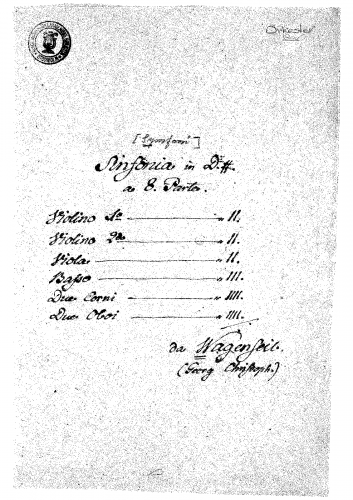 Orkester
[Symfoni]
Sinfonia in D#.
a 8. Parte.
Violino 1mo — " II.
Violino 2do — " II.
Viola — " II.
Basso — " III.
Due Corni — " IIII.
Due Oboi — " IIII.
da Wagenseil.
(Georg Christoph.)